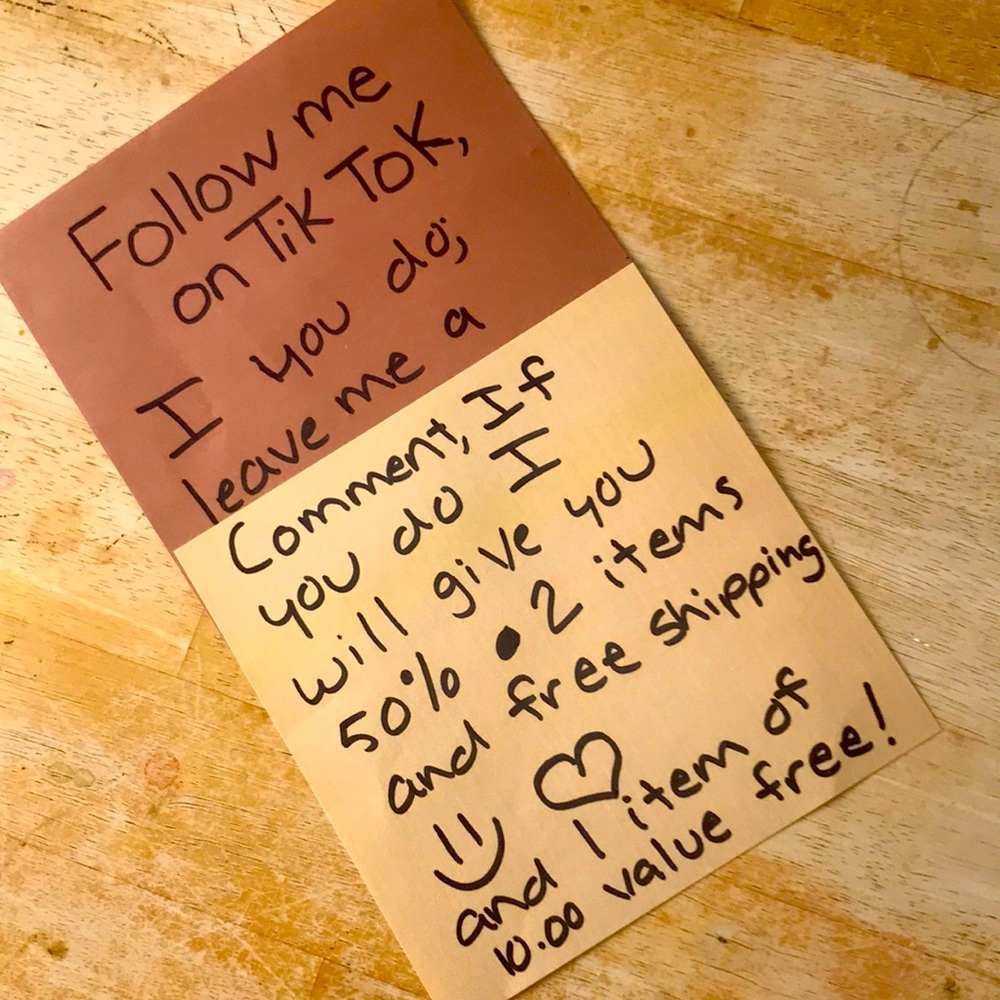 Follow me
on Tik Tok,
I you do;
leave me a
Comment, If
you do I
will give you
50% 2 items
and free shipping
and 1 item of
10.00 value free!